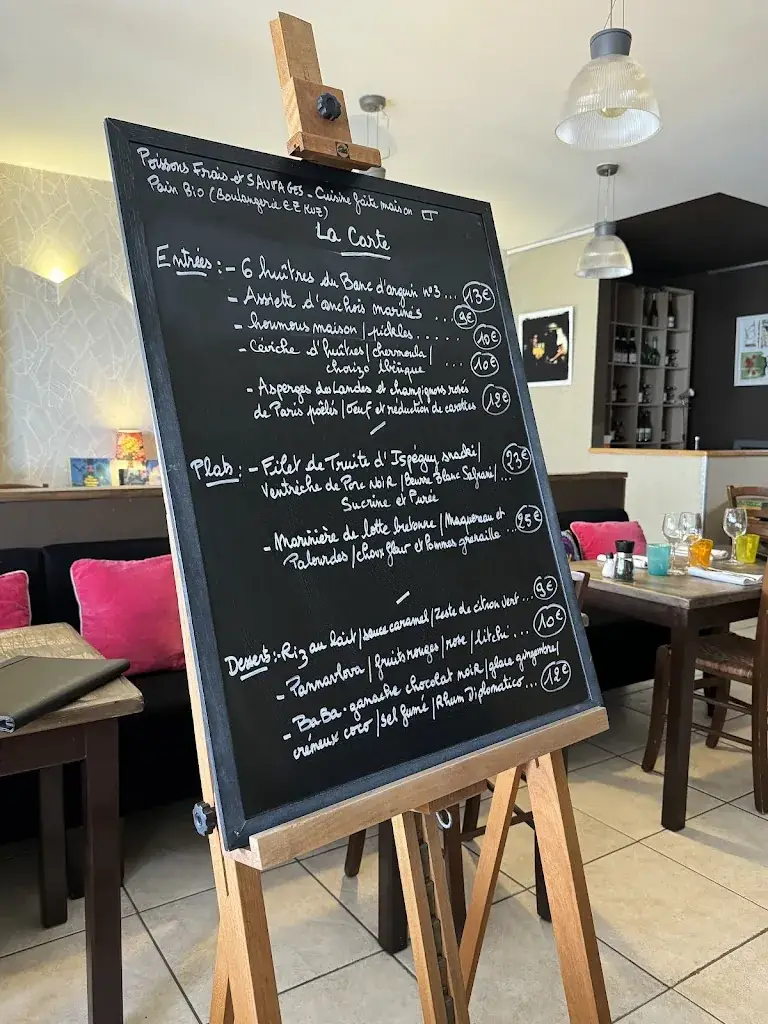 Poissons Frais et SAUVAGES - Cuisine faite maison
Pain Bio (Boulangerie EZ KUZ)
La Carte
Entrées : - 6 huîtres du Banc d'arguin n°3 ... 13€
- Assiette d'anchois marinés ... 9€
- houmous maison / pickles ..... 10€
- Céviche d'huîtres / chermoula /
chorizo ibérique ... 10€
- Asperges des Landes et champignons rosés
de Paris poêlés / Oeuf et réduction de carottes 12€
Plats : - Filet de Truite d'Ispéguy snacké /
Ventrèche de Porc NOIR / Beurre Blanc Safrané / ... 23€
Sucrine et Purée
- Marinière de lotte bretonne / Maquereau et
Palourdes / choux fleur et Pommes grenaille ... 25€
Desserts : - Riz au lait / sauce caramel / Zeste de citron vert ... 9€
- Pannavlova / fruits rouges / rose / litchi ... 10€
- BaBa - ganache chocolat noir / glace gingembre /
crémeux coco / sel fumé / Rhum Diplomatico ... 12€